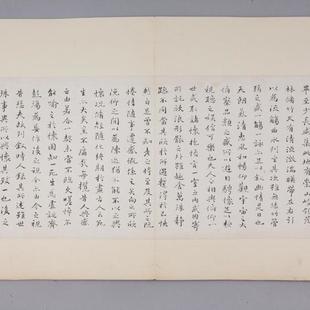 畢至少長咸集此地有崇山峻領茂
林脩竹又有清流激湍暎帶左右引
以為流觴曲水列坐其次雖無絲竹管
弦之盛一觴一詠亦足以暢敘幽情是日也
天朗氣清惠風和暢仰觀宇宙之大
俯察品類之盛所以遊目騁懷足以極
視聽之娛信可樂也夫人之相與俯仰一
世或取諸懷抱悟言一室之內或因寄
所託放浪形骸之外雖趣舍萬殊靜
躁不同當其欣於所遇蹔得於己怏
然自足不知老之將至及其所之既
惓情隨事遷感慨係之矣向之所欣
俛仰之間以為陳迹猶不能不以之興
懷況脩短隨化終期於盡古人云死
生亦大矣豈不痛哉每攬昔人興感
之由若合一契未嘗不臨文嗟悼不
能喻之於懷固知一死生為虛誕齊
彭殤為妄作後之視今亦由今之視
昔悲夫故列敘時人錄其所述雖世
殊事異所以興懷其致一也後之